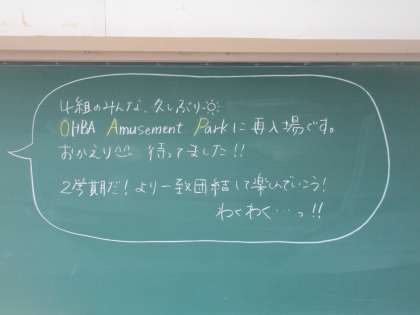 4組のみんな、久しぶり☼
OHBA Amusement Parkに再入場です。
おかえり 待ってました!!
2学期だ!より一致団結して楽しんでいこう!
わくわく…っ!!